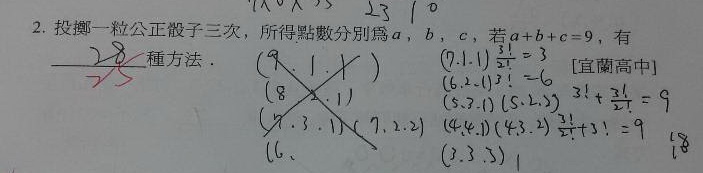 23 10
2. 投擲一粒公正骰子三次，所得點數分別為a，b，c，若a+b+c=9，有
28 種方法．
25
[宜蘭高中]
(9.1.1)
(8 2.1)
(7.3.1)(7.2.2)
(6.
(7.1.1) 3!/2! = 3
(6.2.1) 3! = 6
(5.3.1)(5.2.2) 3! + 3!/2! = 9
(4.4.1)(4.3.2) 3!/2! + 3! = 9
(3.3.3) 1
18